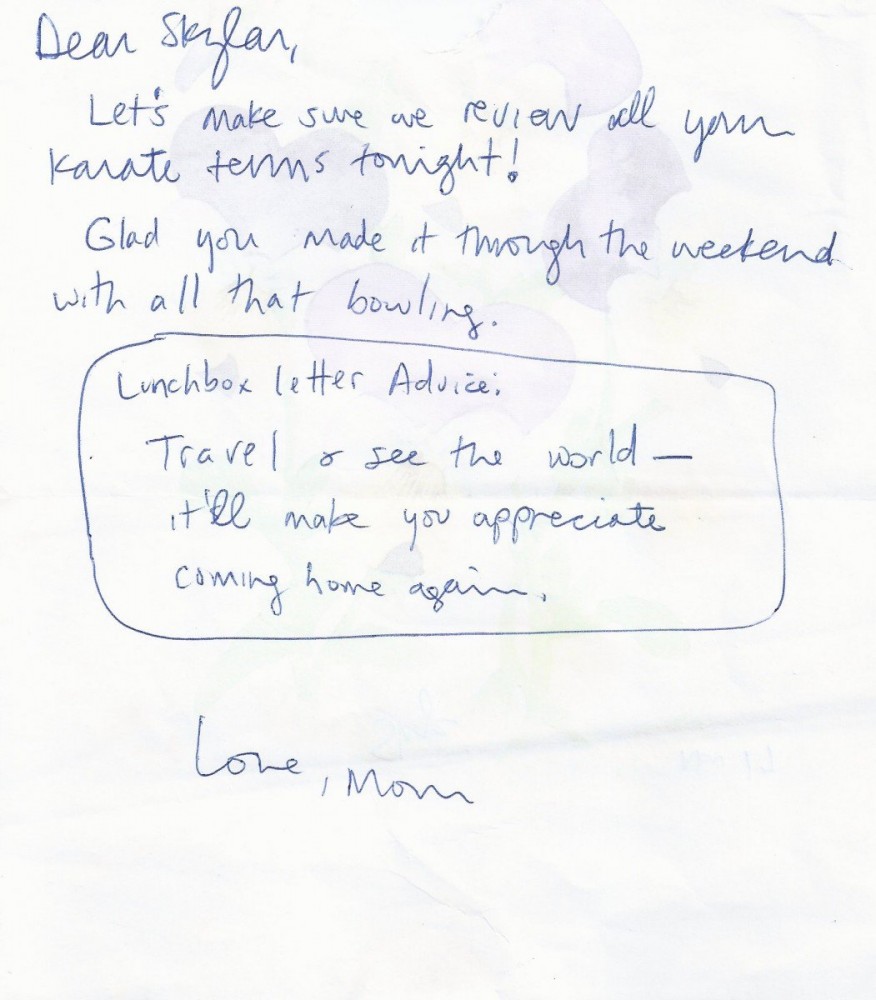 Dear Skylar,
Let's make sure we review all your
karate terms tonight!
Glad you made it through the weekend
with all that bowling.
Lunchbox letter Advice:
Travel & see the world —
it'll make you appreciate
coming home again.
Love, Mom